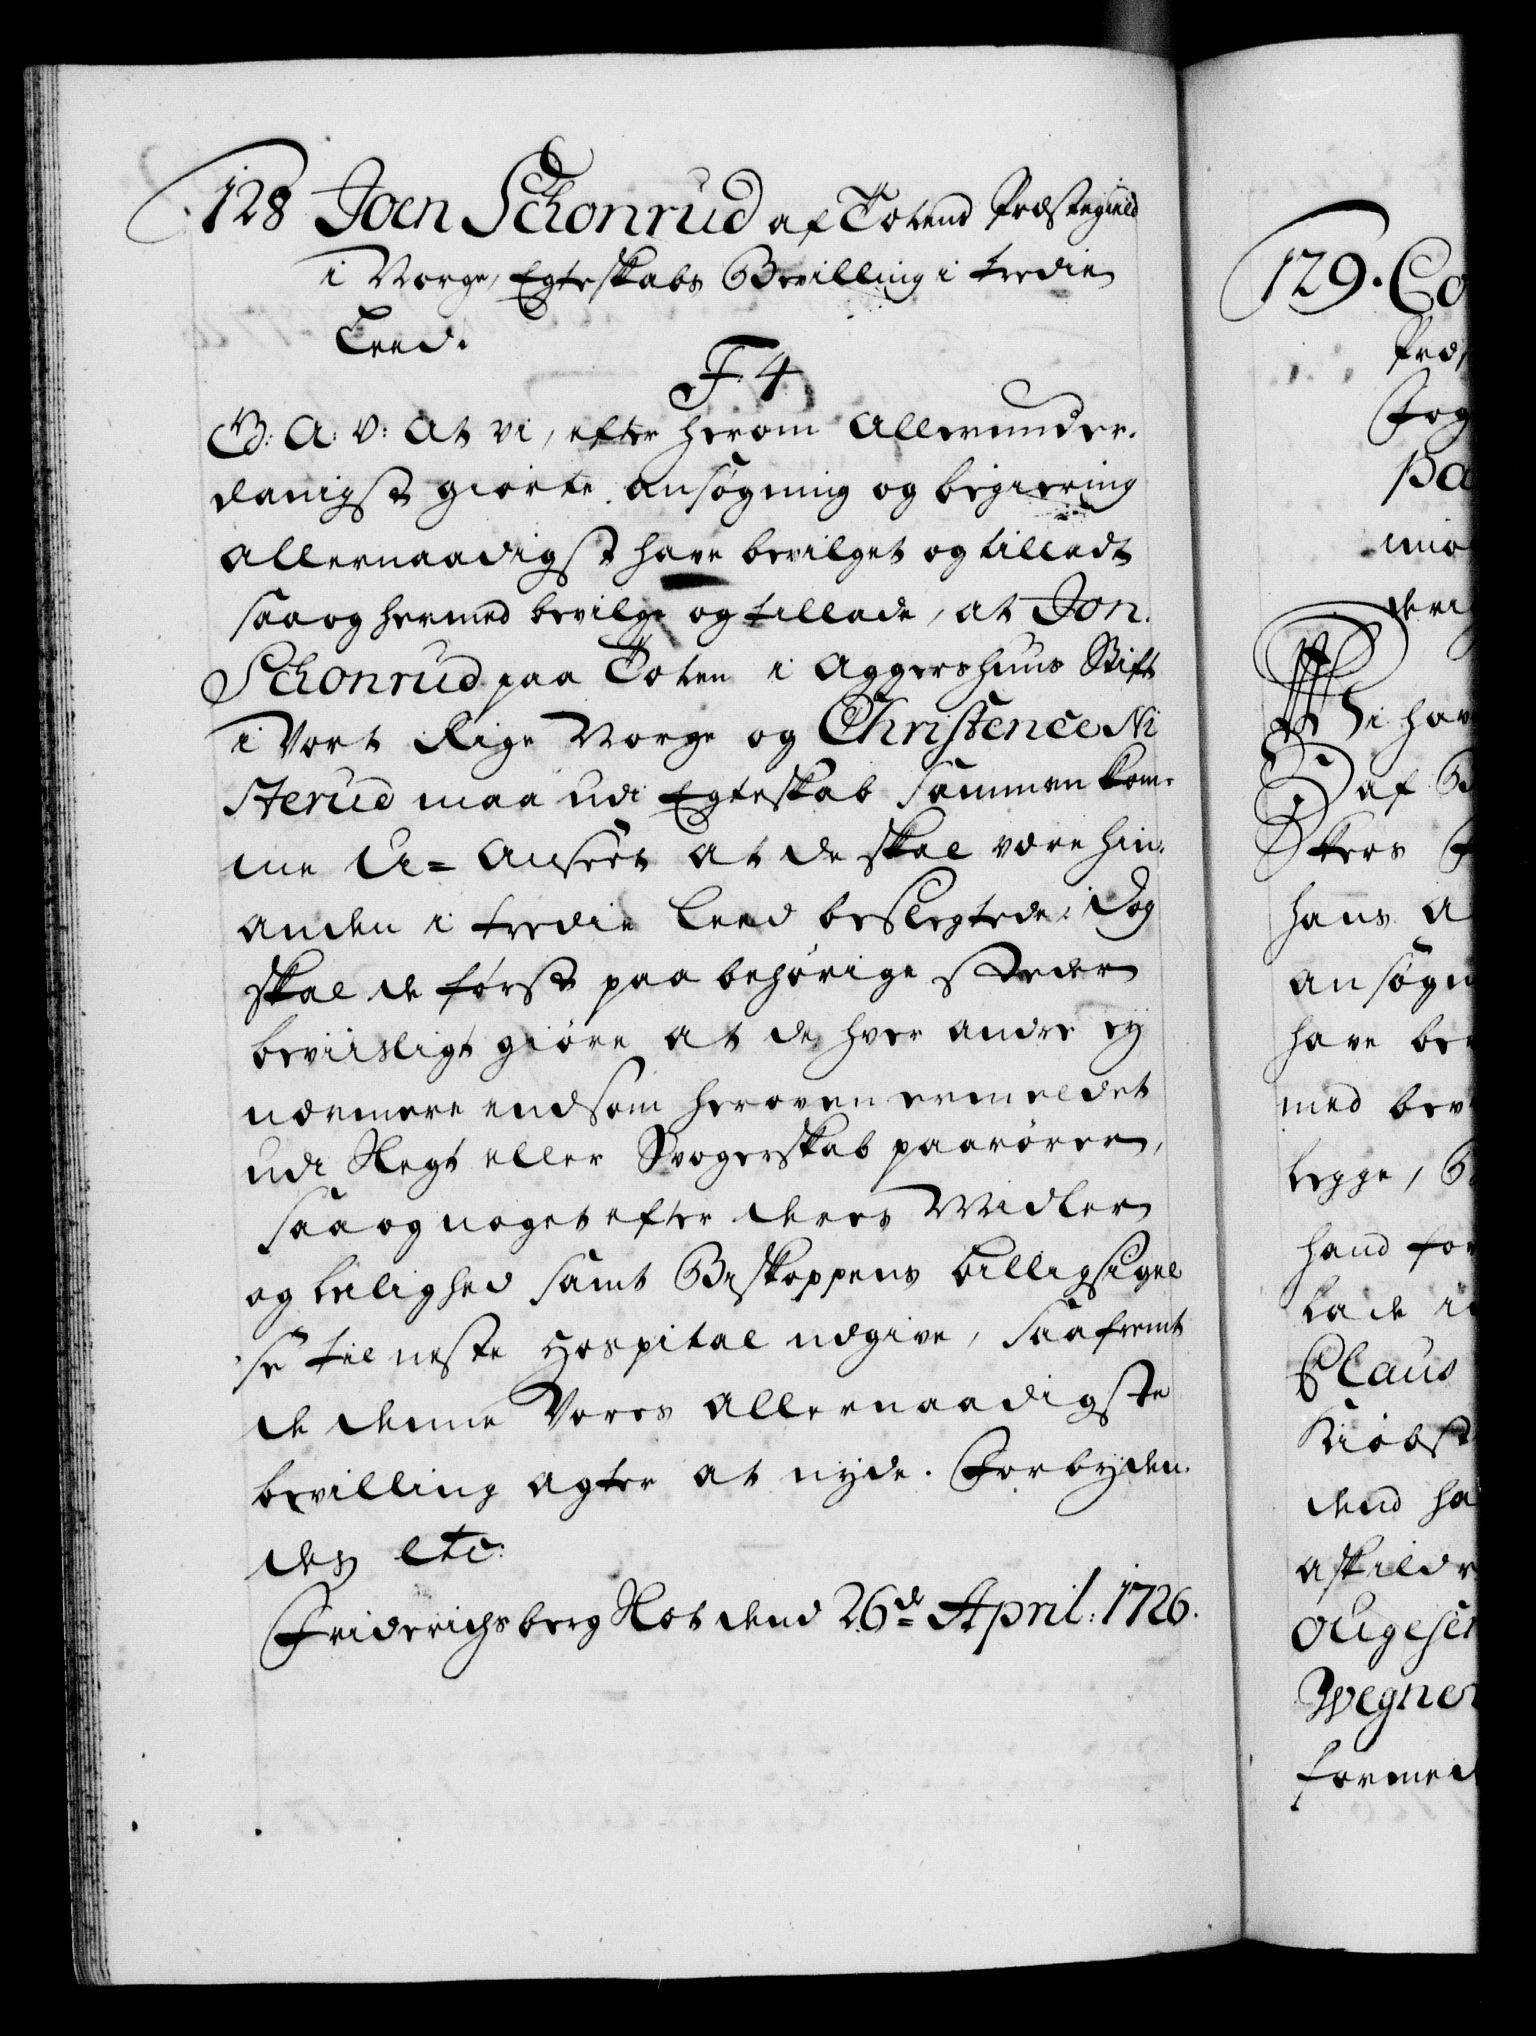 128 Joen Schonrud af Totend Præstegield
i Norge, Egteskabs Bevilling i tredie
Leed.
F. 4
G: A: V: At vi, efter herom Allerunder-
danigst giorte ansøgning og begiering
Allernaadigst have bevilget og tilladt
saa og hermed bevilge og tillade, at Jon
Schonrud paa Toten i Aggershuus Stift
i Vort Rige Norge og Christence Ni
sterud maa udi Egteskab sammen kom-
me U= Anseet at de skal være hin-
anden i tredie Leed beslegtede; Dog
skal de først paa behørige stæder
beviisligt giøre at de hver andre ej
nærmere end som heroven ermeldet
udi Slegt eller Svogerskab paarører,
saa og noget efter deres Midler
og leilighed samt Biskoppens billigsigel
se til neste Hospital udgive, saafremt
de denne Vores Allernaadigste
bevilling agter at nyde. Forbyden-
des etc:
Friderichsberg Slot dend 26de April: 1726.
129. Co
Præs
Fog
pa
mio
derig
Vi hav
af B
kers F
hans A
ansøgn
have bev
med bev
legge, B
hand for
lade i
Claus
Kiøbst
dend ha
askildr
Wegner
formed